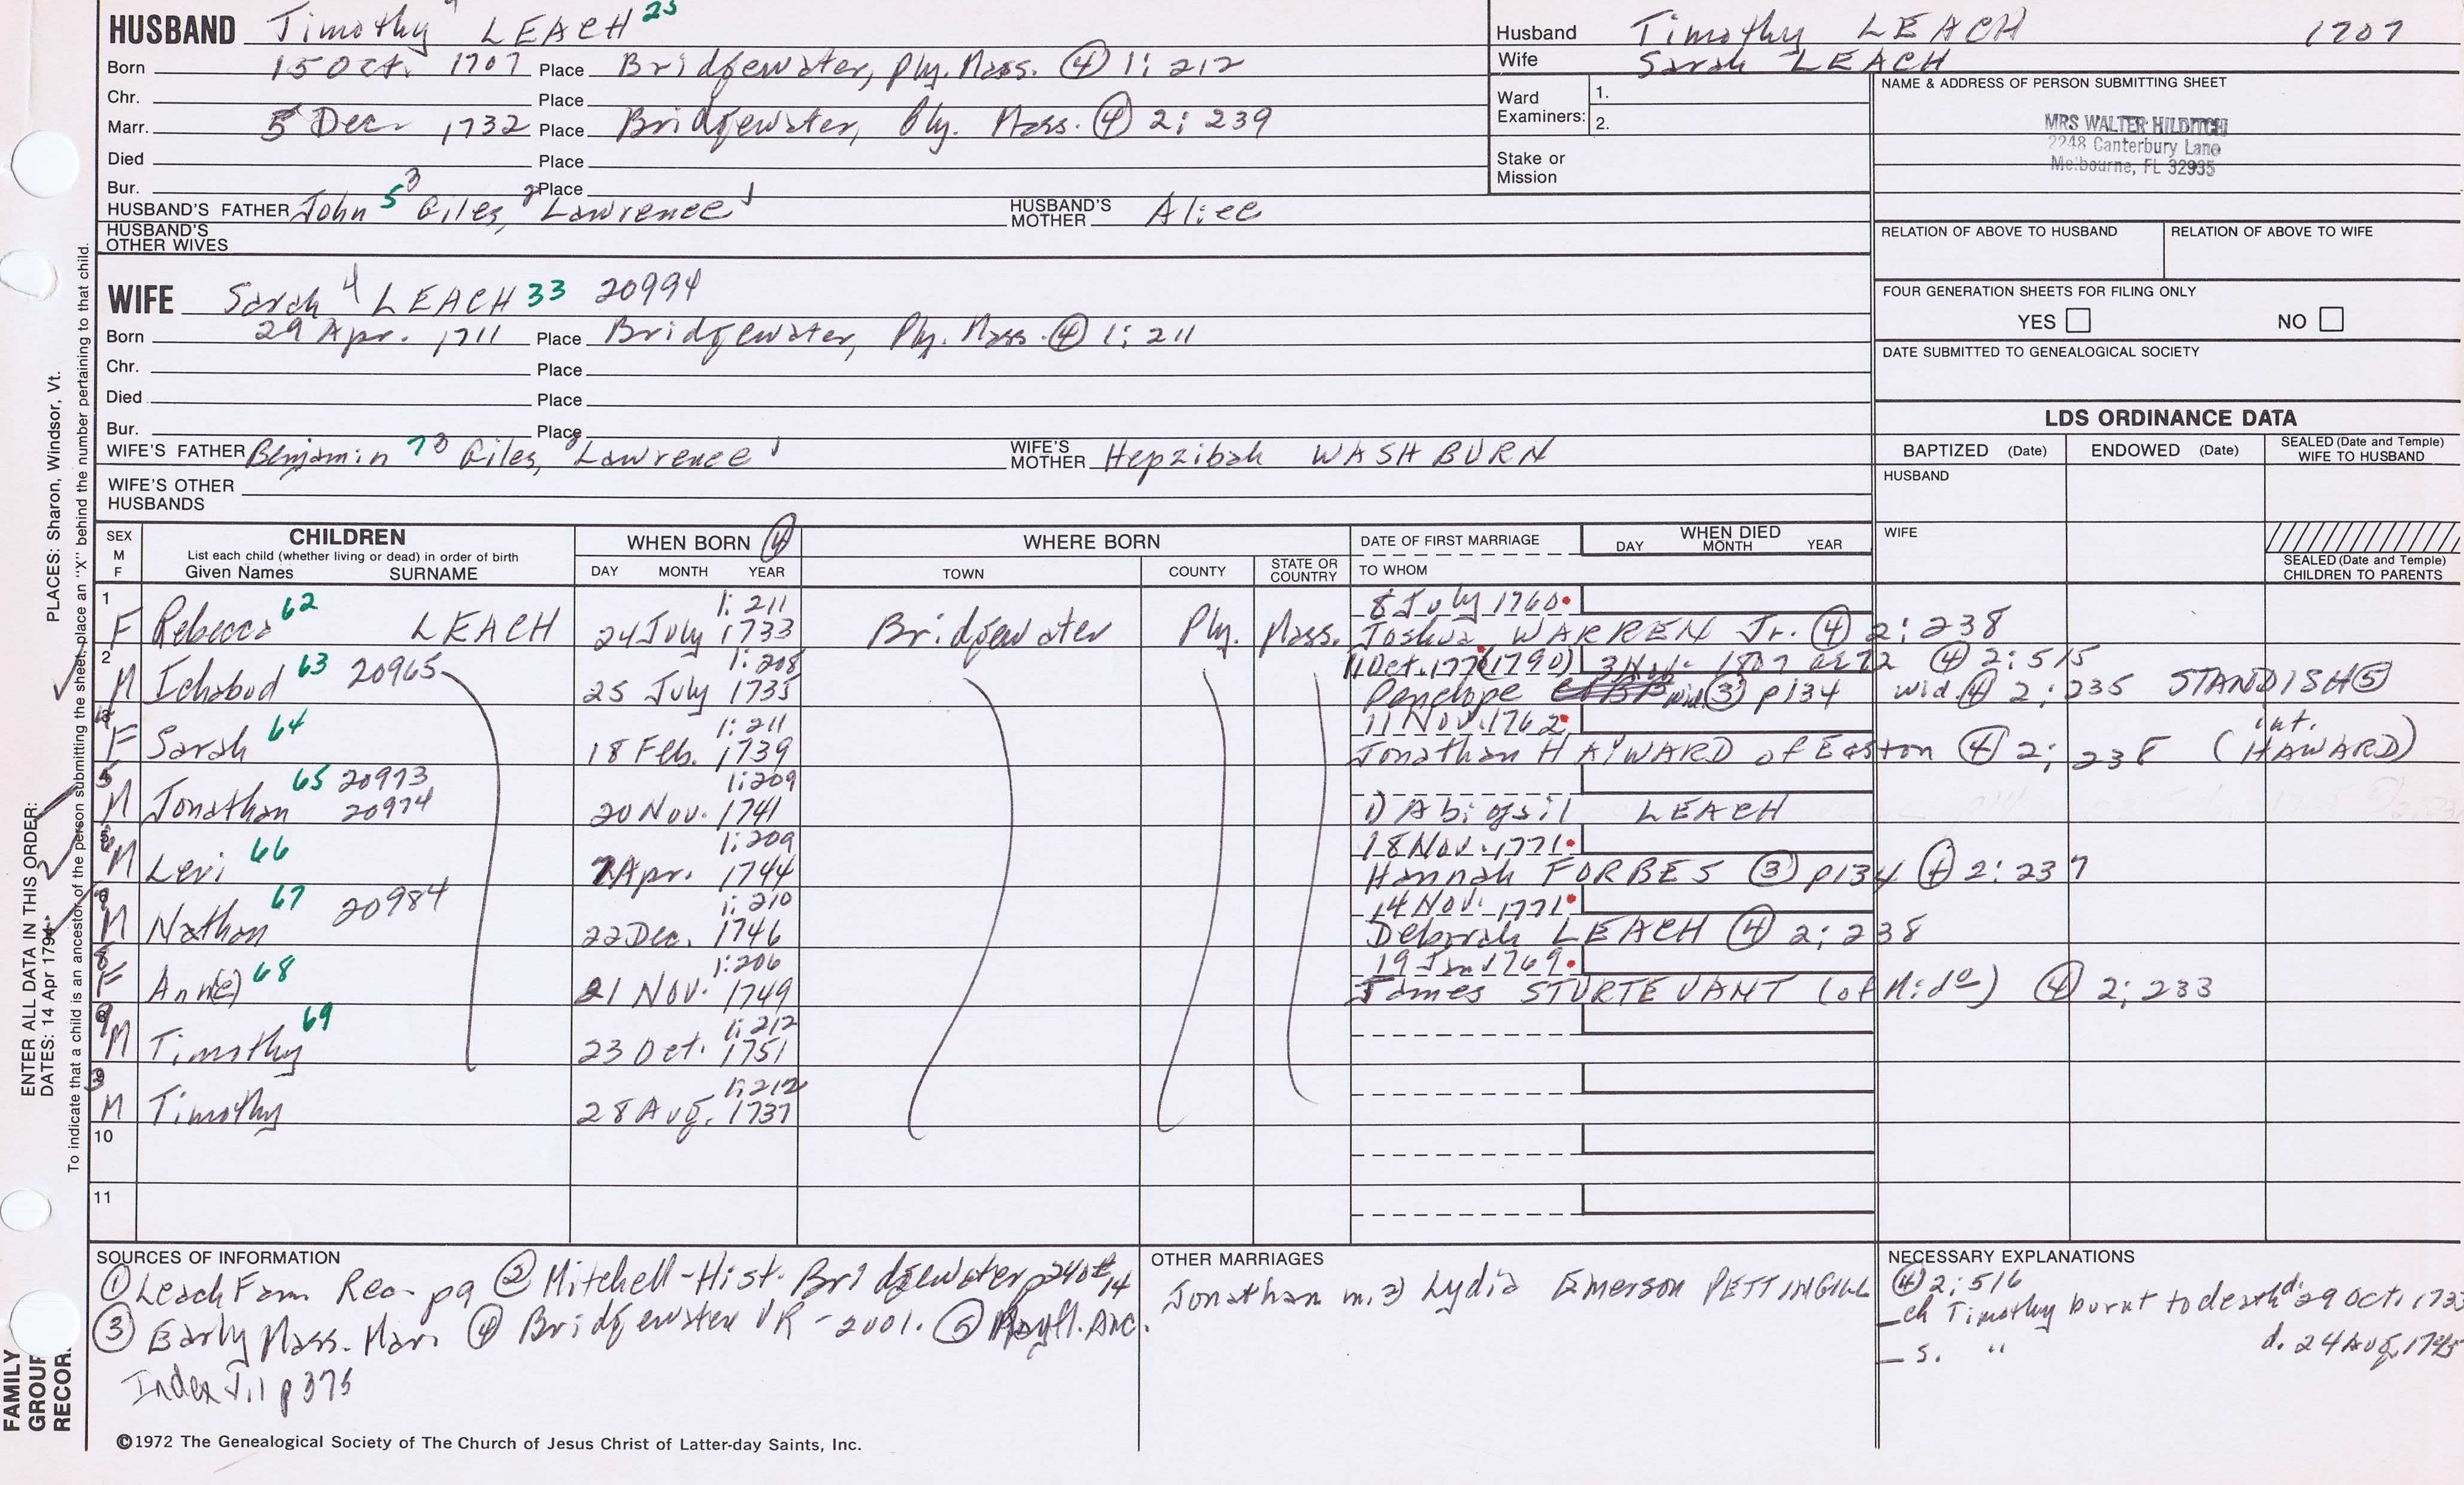 HUSBAND Timothy 4 LEACH 25
Born 15 Oct. 1707 Place Bridgewater, Ply. Mass. ④ 1: 212
Chr. Place
Marr. 5 Dec. 1732 Place Bridgewater, Ply. Mass. ④ 2: 239
Died Place
Bur. Place
HUSBAND'S FATHER John 5 3 Giles, 2 Lawrence 1 HUSBAND'S MOTHER Alice
HUSBAND'S OTHER WIVES
WIFE Sarah 4 LEACH 33 20994
Born 29 Apr. 1711 Place Bridgewater, Ply. Mass. ④ 1: 211
Chr. Place
Died Place
Bur. Place
WIFE'S FATHER Benjamin 7 3 Giles, 2 Lawrence 1 WIFE'S MOTHER Hepzibah WASHBURN
WIFE'S OTHER HUSBANDS
Husband Timothy LEACH 1707
Wife Sarah LEACH
Ward Examiners: 1.
2.
Stake or Mission
NAME & ADDRESS OF PERSON SUBMITTING SHEET
MRS WALTER HILDITCH
2248 Canterbury Lane
Melbourne, FL 32935
RELATION OF ABOVE TO HUSBAND RELATION OF ABOVE TO WIFE
FOUR GENERATION SHEETS FOR FILING ONLY
YES NO
DATE SUBMITTED TO GENEALOGICAL SOCIETY
LDS ORDINANCE DATA
BAPTIZED (Date) ENDOWED (Date) SEALED (Date and Temple) WIFE TO HUSBAND
HUSBAND
WIFE
SEALED (Date and Temple) CHILDREN TO PARENTS
SEX M F
CHILDREN
List each child (whether living or dead) in order of birth
Given Names SURNAME
WHEN BORN ④
DAY MONTH YEAR
WHERE BORN
TOWN COUNTY STATE OR COUNTRY
DATE OF FIRST MARRIAGE
TO WHOM
WHEN DIED
DAY MONTH YEAR
1 1: 211 8 July 1760
F Rebecca 62 LEACH 24 July 1733 Bridgewater Ply. Mass. Joshua WARREN Jr. ④ 2: 238
2 1: 208 11 Oct. 177 (1790) 1807 ae 72 ④ 2: 515
M Ichabod 63 20965 25 July 1735 Penelope wid ③ p134 wid. ④ 2: 235 STANDISH ⑤
1: 211 11 Nov. 1762 int.
F Sarah 64 18 Feb. 1739 Jonathan HAYWARD of Easton ④ 2: 238 (HAWARD)
65 20973 1: 209
M Jonathan 20974 20 Nov. 1741 1) Abigail LEACH
1: 209 18 Nov. 1771
M Levi 66 Apr. 1744 Hannah FORBES ③ p134 ④ 2: 237
1: 210 14 Nov. 1771
M Nathan 67 20984 22 Dec. 1746 Deborah LEACH ④ 2: 238
1: 206 19 Jan 1769
F Ann(e) 68 21 Nov. 1749 James STURTEVANT (of Mid°) ④ 2: 233
1: 212
M Timothy 69 23 Oct. 1751
1: 212
M Timothy 28 Aug. 1737
10
11
SOURCES OF INFORMATION
① Leach Fam Rec. p9 ② Mitchell-Hist. Bridgewater
③ Early Mass. Mar. ④ Bridgewater VR - 2001. ⑤ Mayfl. Anc.
Index V.1 p375
OTHER MARRIAGES
Jonathan m. 2) Lydia Emerson PETTINGILL
NECESSARY EXPLANATIONS
④ 2: 516
_ch Timothy burnt to death d. 29 Oct.
_s. " d. 24 Aug.
©1972 The Genealogical Society of The Church of Jesus Christ of Latter-day Saints, Inc.
FAMILY GROUP RECOR
ENTER ALL DATA IN THIS ORDER:
DATES: 14 Apr 1794 PLACES: Sharon, Windsor, Vt.
To indicate that a child is an ancestor of the person submitting the sheet, place an "X" behind the number pertaining to that child.